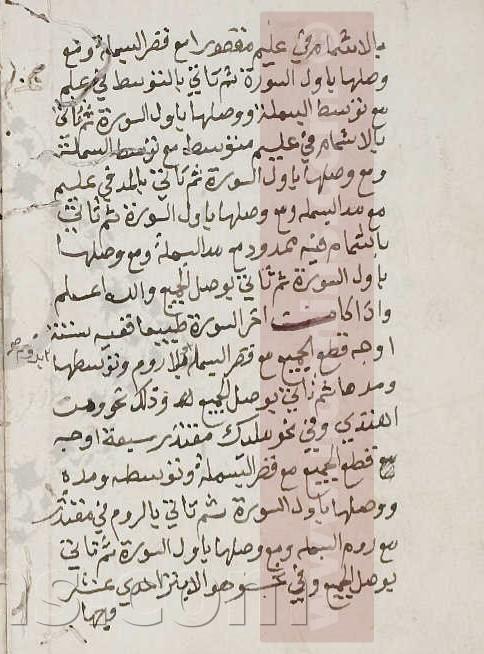 بالاشمام في عليم مقصورا مع قصر البسملة ومع
وصلها باول السورة ثم تاتي بالتوسط في عليم
مع توسط البسملة ووصلها باول السورة ثم تاتي
بالاشمام في عليم متوسط مع توسط البسملة
ومع وصلها باول السورة ثم تاتي بالمد في عليم
مع مد البسملة ومع وصلها باول السورة ثم تاتي
بالاشمام فيه ممدود مع مد البسملة ومع وصلها
باول السورة ثم تاتي بوصل الجميع والله اعلم
واذا كانت اخر السورة طبيعيا ففيه ستة
اوجه قطع الجميع مع قصر البسملة بلا روم وتوسطها
ومدها ثم تاتي بوصل الجميع وذلك نحو ومن
اهتدى وفي نحو مليك مقتدر سبعة اوجه
قطع الجميع مع قصر البسملة وتوسطه ومده
ووصلها باول السورة ثم تاتي بالروم في مقتدر
مع روم البسملة ومع وصلها باول السورة ثم تاتي
بوصل الجميع وفي نحو هو الابتر احدي عشر
وجها
is.com